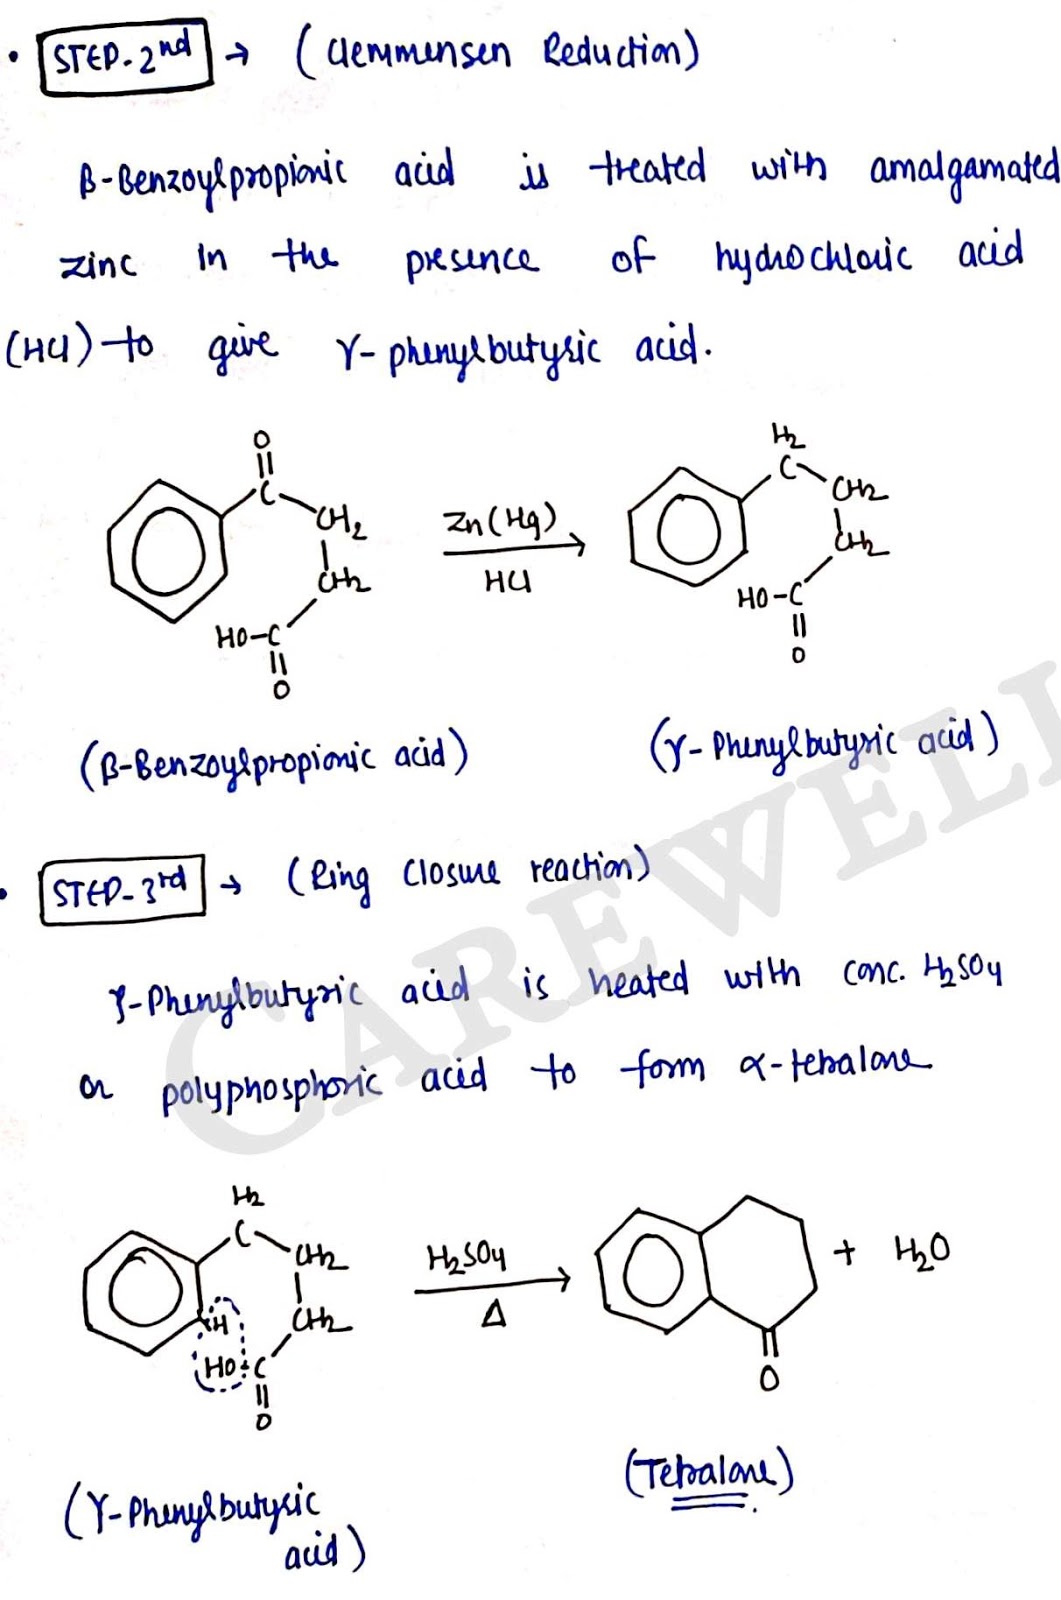 • STEP-2nd → (Clemmensen Reduction)
β-Benzoylpropionic acid is treated with amalgamated
zinc in the presence of hydrochloric acid
(HCl) to give γ-phenylbutyric acid.
O
||
C
CH2
CH2
HO-C
||
O
Zn(Hg)
HCl
H2
C
CH2
CH2
HO-C
||
O
(β-Benzoylpropionic acid)
(γ-Phenylbutyric acid)
• STEP-3rd → (Ring Closure reaction)
γ-Phenylbutyric acid is heated with conc. H2SO4
or polyphosphoric acid to form α-tetralone
H2
C
CH2
CH2
H
HO-C
||
O
H2SO4
Δ
O
+ H2O
(γ-Phenylbutyric
acid)
(Tetralone).
CAREWELL